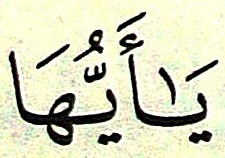 يَٰأَيُّهَا